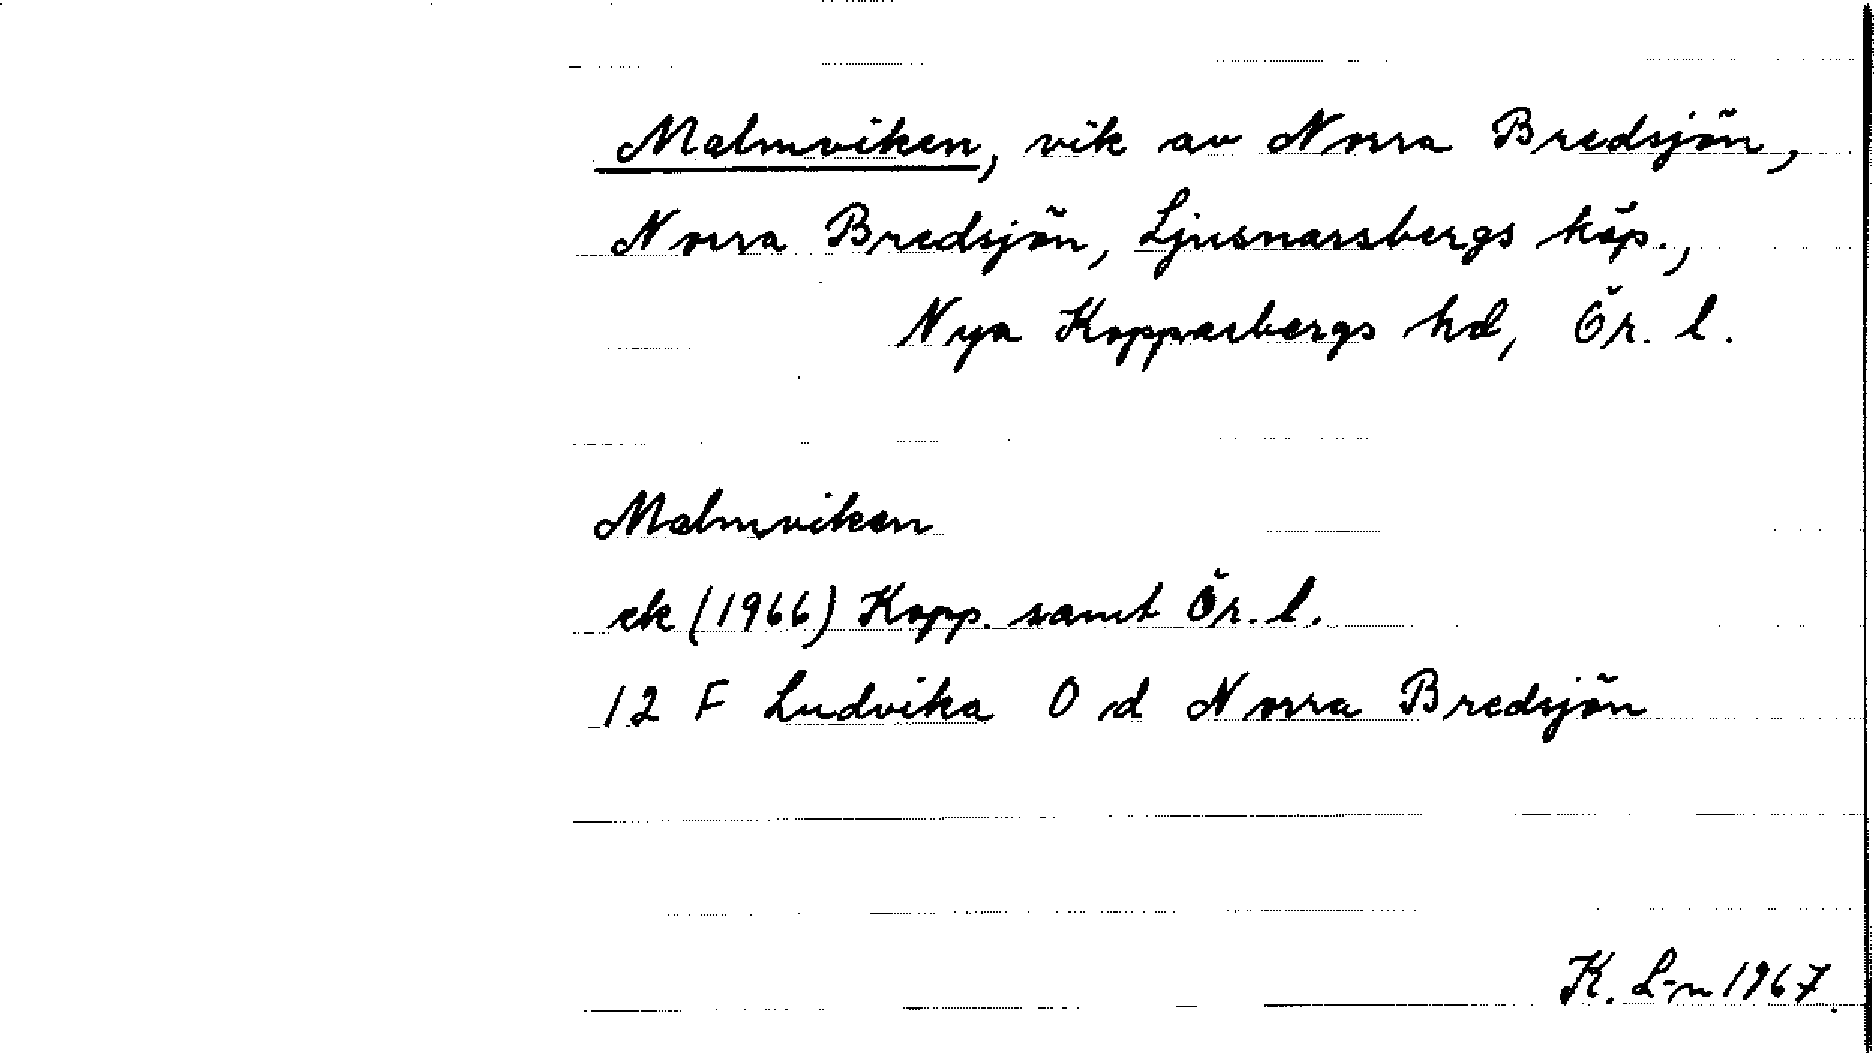 Malmviken, vik av Norra Bredsjön,
Norra Bredsjön, Ljusnarsbergs köp.,
Nya Kopparbergs hd, Ör. l.
Malmviken
ek (1966) Kopp. samt Ör. l.
12 F Ludvika 0 d Norra Bredsjön
K. L-n 1967